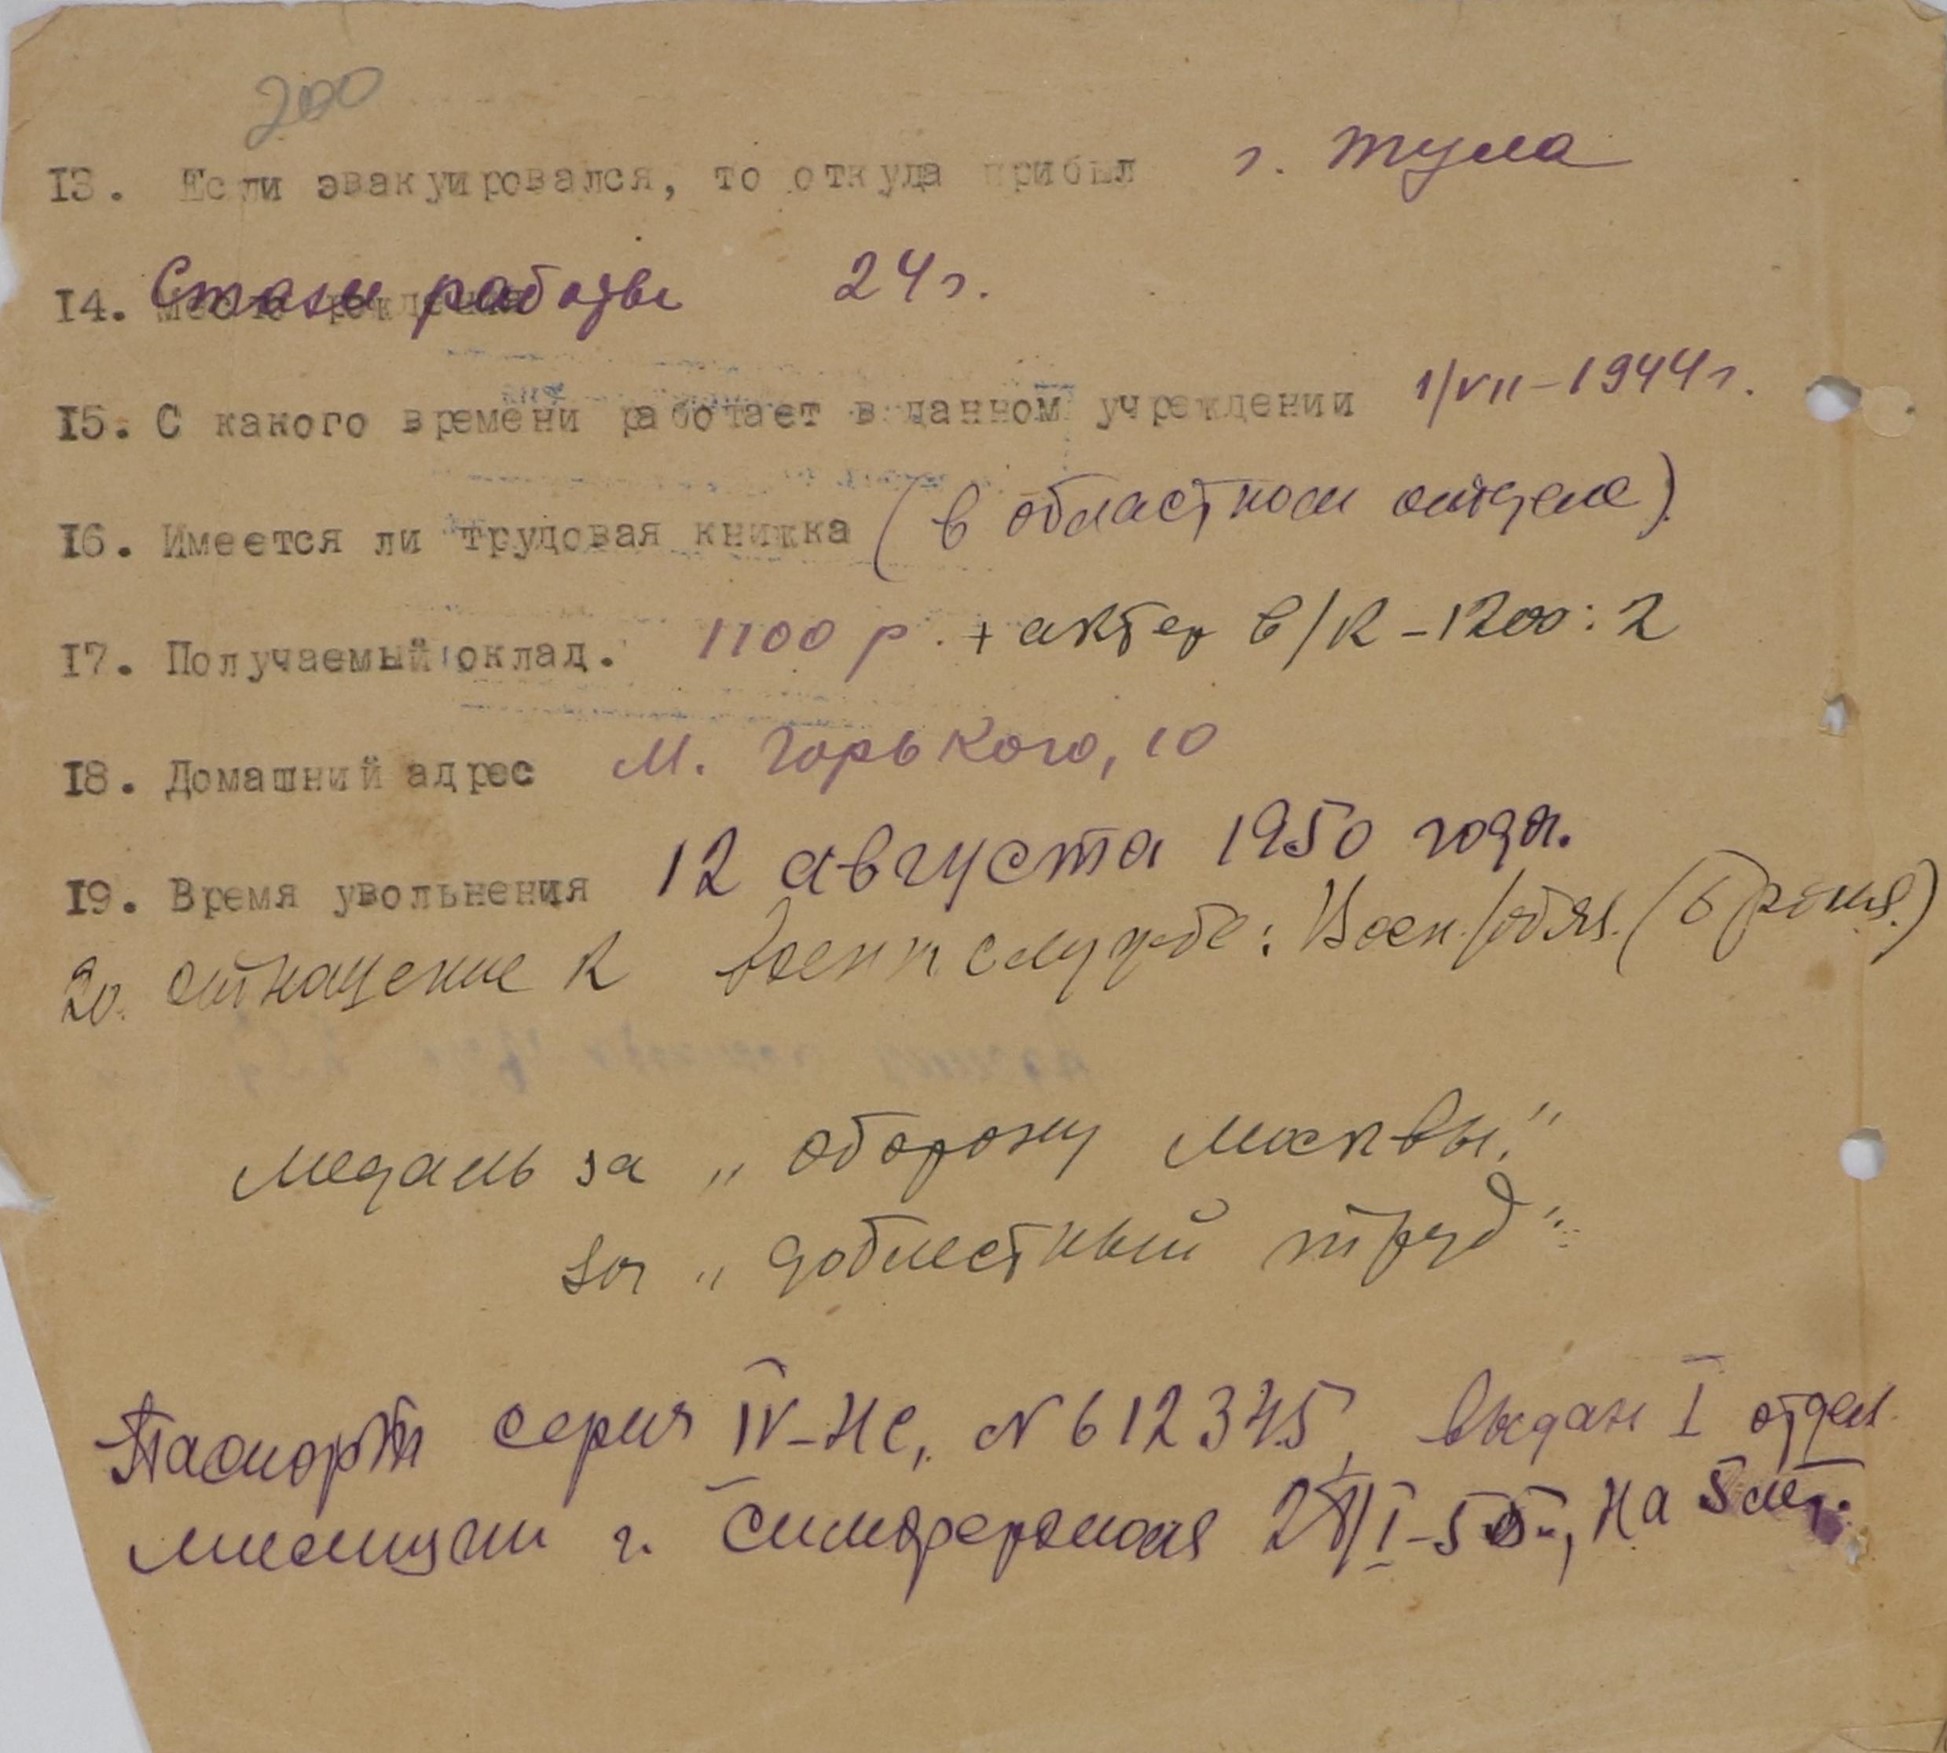 200
13. Если эвакуировался, то откуда прибыл г. Тула
14. Стаж работы 24 г.
15. С какого времени работает в данном учреждении 1/VII-1944 г.
16. Имеется ли трудовая книжка (в областном отделе).
17. Получаемый оклад. 1100 р. + актер в/к - 1200 : 2
18. Домашний адрес М. Горького, 10
19. Время увольнения 12 августа 1950 года.
20. отношение к военн службе: Воен./обяз. (броня.)
медаль за „оборону Москвы."
за „доблестный труд"
Паспорт серия IV-НС, N 612345, выдан I отдел.
милиции г. Симферополя на 5 лет.